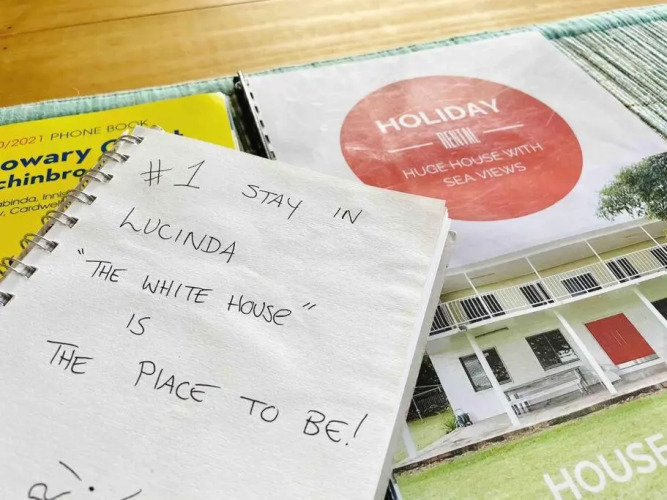 0/2021 PHONE BOOK
owary C
chinbro
abinda, Innis
y, Cardwel
#1 STAY IN
LUCINDA
"THE WHITE HOUSE"
IS
THE PLACE TO BE!
HOLIDAY
RENTAL
HUGE HOUSE WITH
SEA VIEWS
HOUSE